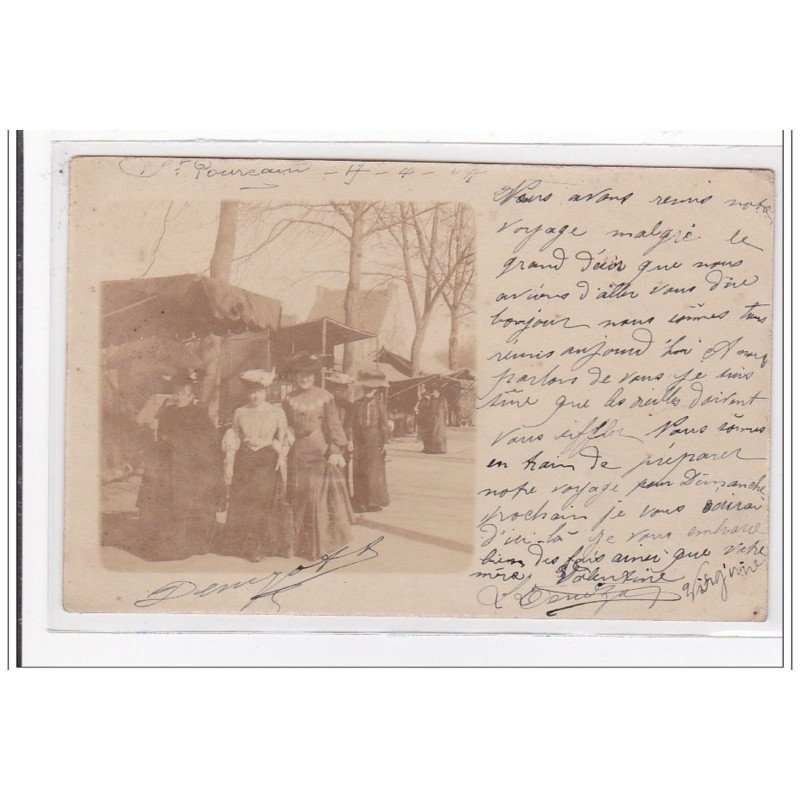 St Pourçain - 17-4-04
Nous avons remis notre
voyage malgré le
grand désir que nous
avions d'aller vous dire
bonjour nous sômes tous
réunis aujourd'hui et nous
parlons de vous je suis
sûre que les oreilles doivent
vous siffler. Nous sômes
en train de préparer
notre voyage pour Dimanche
prochain je vous écrirai
d'ici-là je vous embrasse
bien des fois ainsi que votre
mère Valentine
Virginie
Denizot